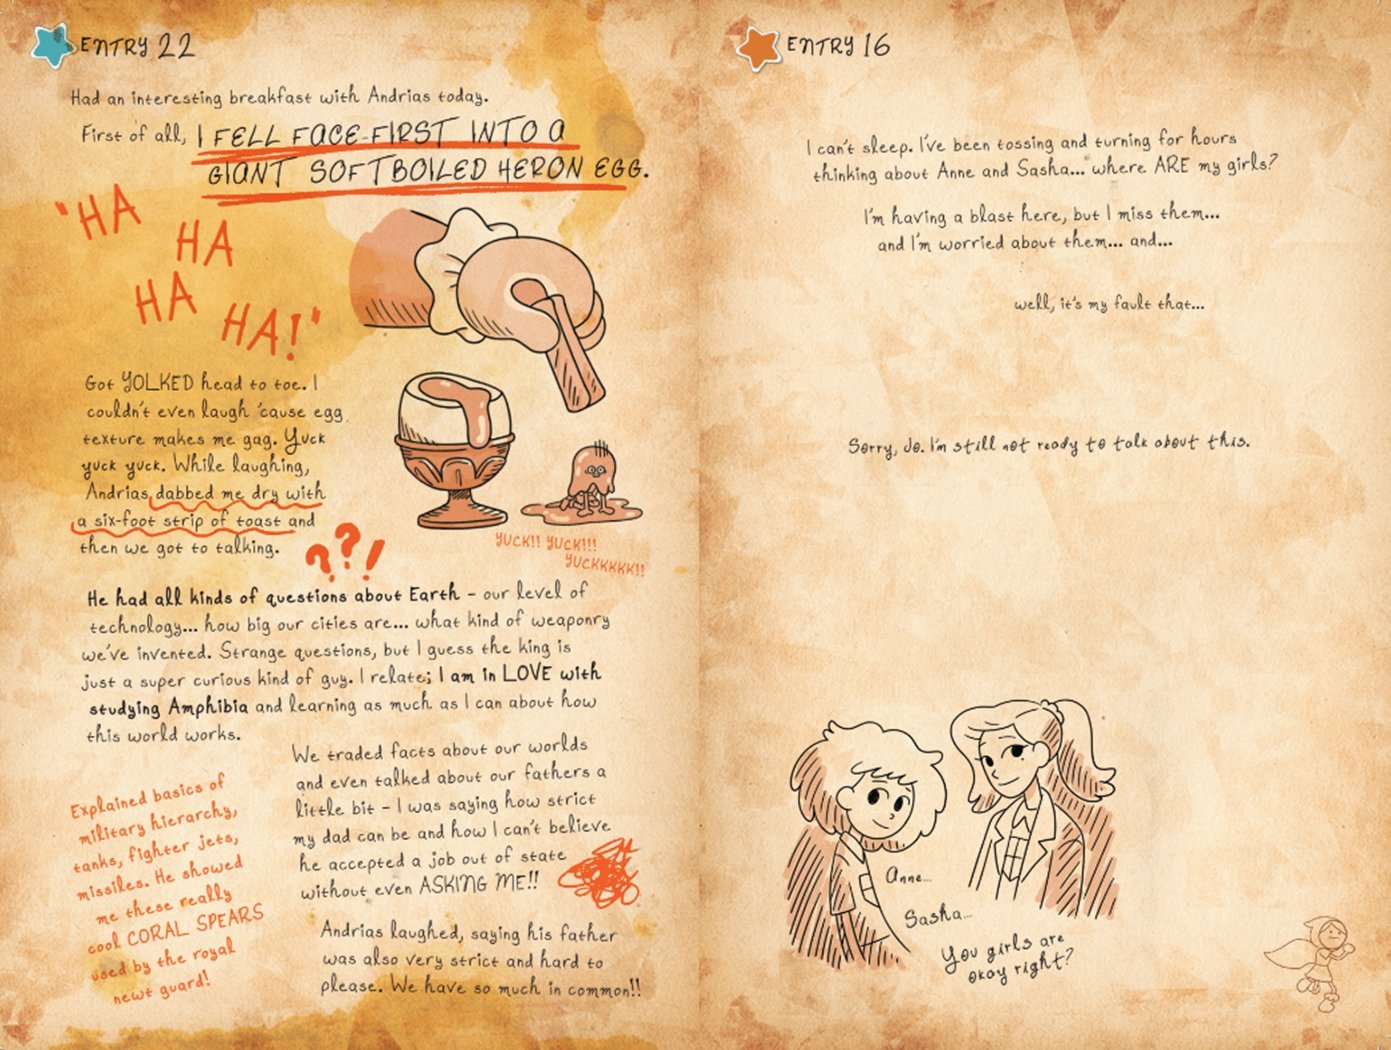 ENTRY 22
Had an interesting breakfast with Andrias today.
First of all, I FELL FACE-FIRST INTO A
GIANT SOFTBOILED HERON EGG.
"HA
HA
HA
HA!"
Got YOLKED head to toe. I
couldn't even laugh 'cause egg
texture makes me gag. Yuck
yuck yuck. While laughing,
Andrias dabbed me dry with
a six-foot strip of toast and
then we got to talking.
YUCK!! YUCK!!!
YUCKKKKK!!
??!
He had all kinds of questions about Earth – our level of
technology... how big our cities are... what kind of weaponry
we've invented. Strange questions, but I guess the king is
just a super curious kind of guy. I relate; I am in LOVE with
studying Amphibia and learning as much as I can about how
this world works.
We traded facts about our worlds
and even talked about our fathers a
little bit – I was saying how strict
my dad can be and how I can't believe
he accepted a job out of state
without even ASKING ME!!
Andrias laughed, saying his father
was also very strict and hard to
please. We have so much in common!!
Explained basics of
military hierarchy,
tanks, fighter jets,
missiles. He showed
me these really
cool CORAL SPEARS
used by the royal
newt guard!
ENTRY 16
I can't sleep. I've been tossing and turning for hours
thinking about Anne and Sasha... where ARE my girls?
I'm having a blast here, but I miss them...
and I'm worried about them... and...
well, it's my fault that...
Sorry, Jo. I'm still not ready to talk about this.
Anne...
Sasha...
You girls are
okay right?